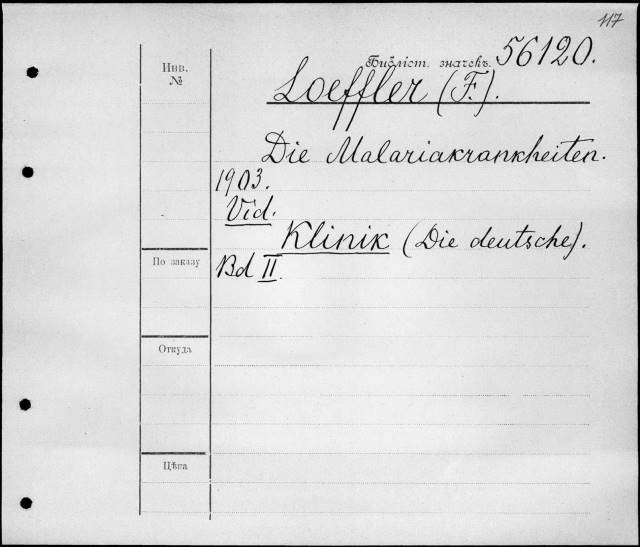 117
Инв.
№
Библіст. значекъ. 56120.
Loeffler (F.).
Die Malariakrankheiten.
1903.
Vid.
Klinik (Die deutsche).
По заказу
Bd II.
Откуда
Цѣна